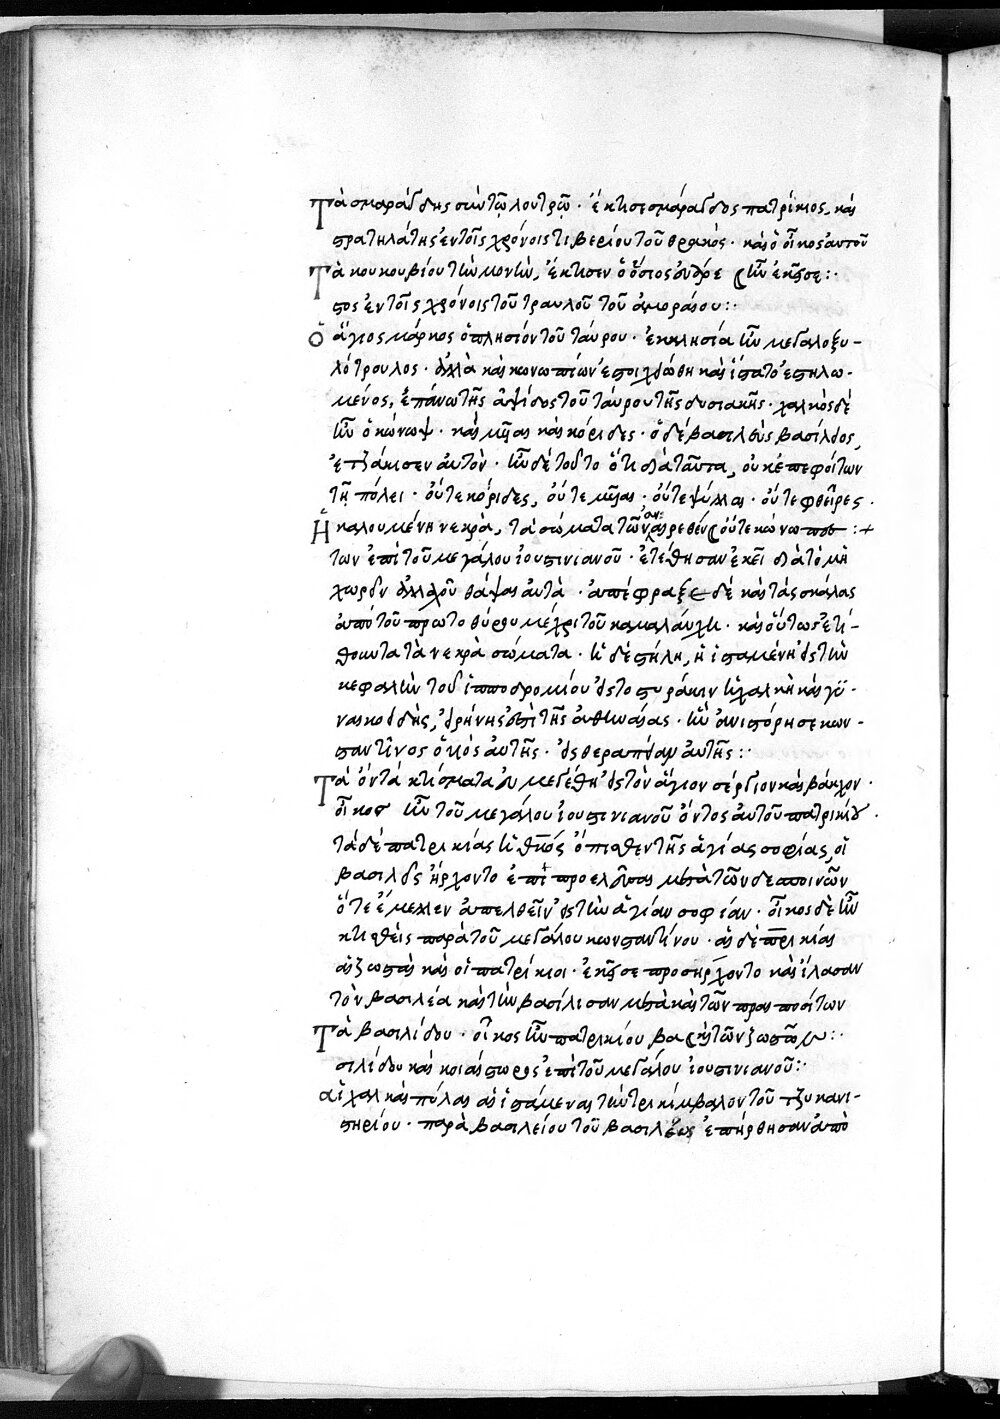 Τὰ σμαράγδης σὺν τῷ λουτρῷ · ἔκτισε σμάραγδος πατρίκιος, καὶ
στρατηλάτης ἐν τοῖς χρόνοις τιβερίου τοῦ θρακός · καὶ ὁ οἶκος αὐτοῦ
Τὰ κουκουβίου τὴν μονὴν, ἔκτισεν ὁ ὅσιος ἦν ἐκεῖσε :·
ἐν τοῖς χρόνοις τοῦ τραυλοῦ τοῦ ἀμοραίου :·
Ὁ ἅγιος μάρκος ὁ πλησίον τοῦ ταύρου · ἐκκλησία ἦν μεγάλο ξυ-
λότρουλος · ἀλλὰ καὶ κωνωπίων καὶ ἵστατο ἐστηλω-
μένος, ἐπάνω τῆς ἁψίδος τοῦ ταύρου τῆς δυσιακῆς · χαλκὸς δὲ
ἦν ὁ κώνωψ · καὶ μῦας καὶ κόριδες · ὁ δὲ βασιλεὺς βασίλειος,
ἐτζάκισεν αὐτὸν · ἦν δὲ τοῦτο ὅτι διὰ ταῦτα, οὐκ ἐπεφοίτων
τῇ πόλει · οὔτε κόριδες, οὔτε μῦας · οὔτε ψύλλαι · οὔτε φθεῖρες ·
Ἡ καλουμένη νεκρὰ, τὰ σώματα τῶν ἀναιρεθέν οὔτε κώνωπες :+
των ἐπὶ τοῦ μεγάλου ἰουστινιανοῦ · ἐτέθησαν ἐκεῖ διὰ τὸ μὴ
χωρεῖν ἀλλαχοῦ θάψαι αὐτὰ · ἀπέφραξε δὲ καὶ τὰς σκάλας
ἀπὸ τοῦ πρωτοθύρου μέχρι τοῦ καμαλαύκη · καὶ οὕτως ἐτι-
θουντα τὰ νεκρὰ σώματα · ἡ δὲ στήλη, ἡ ἱσταμένη εἰς τὴν
κεφαλὴν τοῦ ἱπποδρομίου εἰς τὸ πυράκιν ἡ χαλκὴ καὶ γυ-
ναικοειδὴς, εἰρήνης ἐστὶ τῆς ἀθηναίας · ἣν ἀνιστόρησε κων-
σταντῖνος ὁ υἱὸς αὐτῆς · εἰς θεραπείαν αὐτῆς :·
Τὰ ὄντα κτίσματα ἐν μεγέθη εἰς τὸν ἅγιον σέργιον καὶ βάκχον ·
οἶκος ἦν τοῦ μεγάλου ἰουστινιανοῦ ὄντος αὐτοῦ πατρικίου ·
τὰ δὲ πατρικίας ὄπισθεν τῆς ἁγίας σοφίας, οἱ
βασιλεῖς ἤρχοντο ἐπὶ προελεύσας μετὰ τῶν δεσποινῶν
ὅτε ἔμελλεν ἀπελθεῖν εἰς τὴν ἁγίαν σοφίαν · οἶκος δὲ ἦν
κτισθεὶς παρὰ τοῦ μεγάλου κωνσταντίνου · αἱ δὲ πρικίαι
αἱ ζωσταὶ καὶ οἱ πατρίκιοι · ἐκεῖσε προσήρχοντο καὶ εἵλασαν
τὸν βασιλέα καὶ τὴν βασίλισαν μετὰ καὶ τῶν πραιποσίτων
Τὰ βασιλίδου · οἶκος ἦν πατρικίου βα καὶ τῶν ζωστῶν :·
σιλίδου καὶ κοιαίστωρος ἐπὶ τοῦ μεγάλου ἰουστινιανοῦ :·
αἱ χαλκαὶ πύλαι αἱ ἱστάμεναι τὴν τρικίμβαλον τοῦ τζυκανι-
στηρίου · παρὰ βασιλείου τοῦ βασιλέως ἐπήρθησαν ἀπὸ